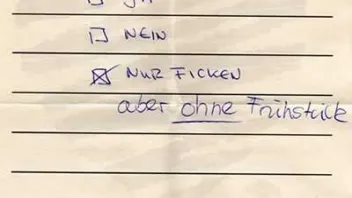 JA
NEIN
NUR FICKEN
aber ohne Frühstück